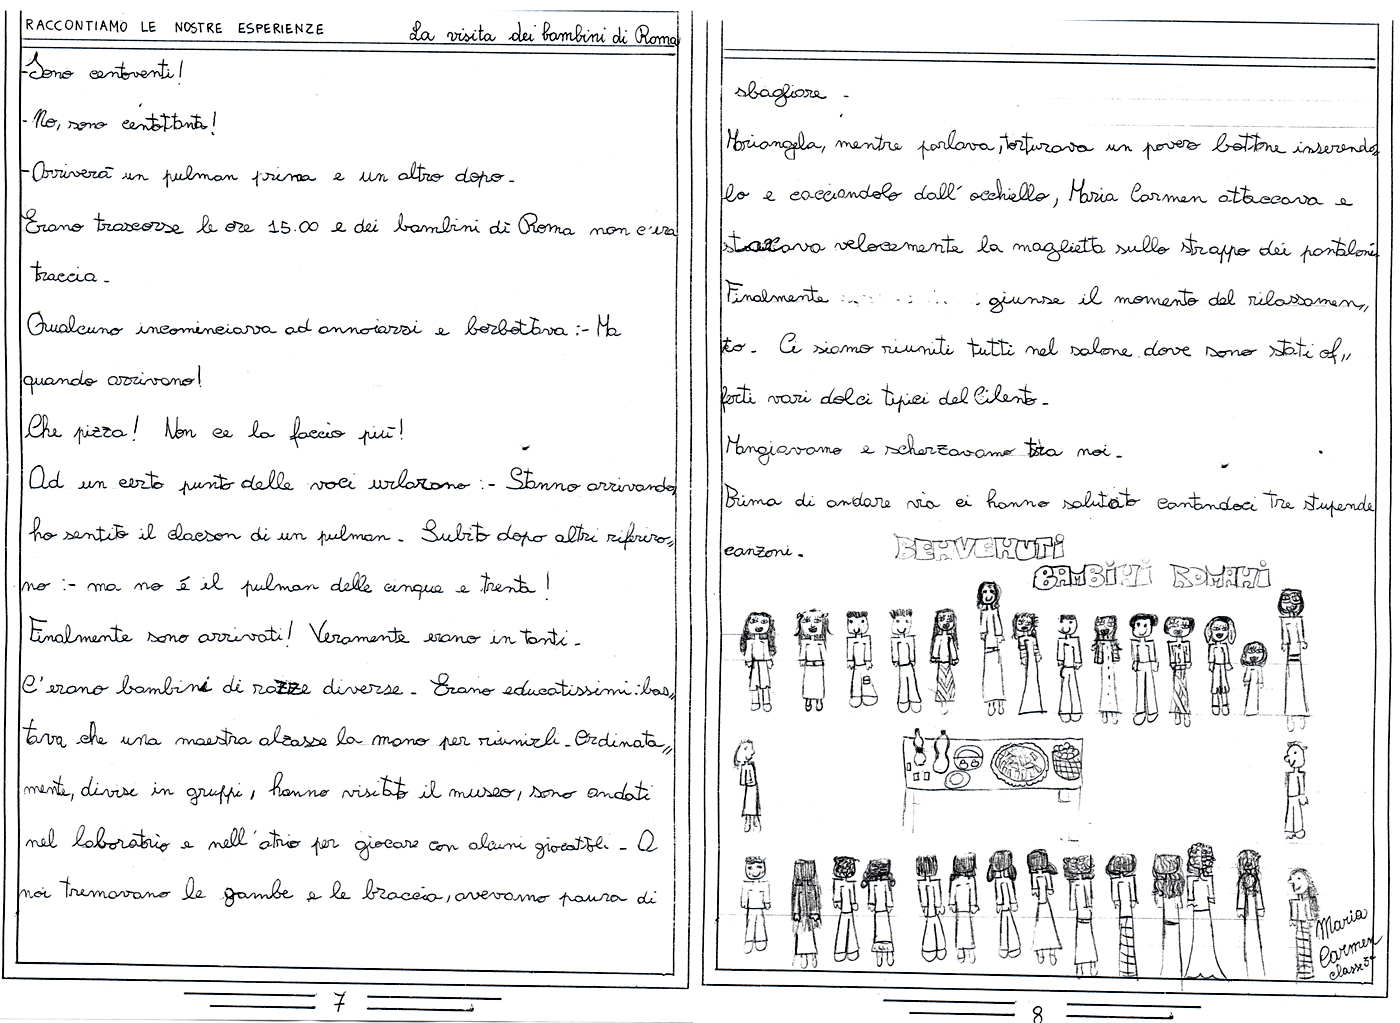 RACCONTIAMO LE NOSTRE ESPERIENZE
La visita dei bambini di Roma
-Sono centoventi!
-No, sono centottanta!
-Arriverà un pulman prima e un altro dopo-
Erano trascorse le ore 15.00 e dei bambini di Roma non c'era
traccia-
Qualcuno incominciava ad annoiarsi e borbottava:- Ma
quando arrivano!
Che pizza! Non ce la faccio più!
Ad un certo punto delle voci urlarono:- Stanno arrivando,
ho sentito il clacson di un pulman- Subito dopo altri riferiro,,
no:- ma no é il pulman delle cinque e trenta!
Finalmente sono arrivati! Veramente erano in tanti-
C'erano bambini di razze diverse- Erano educatissimi: bas,,
tava che una maestra alzasse la mano per riunirli- Ordinata,,
mente, divisi in gruppi, hanno visitato il museo, sono andati
nel laboratorio e nell'atrio per giocare con alcuni giocattoli- A
noi tremavano le gambe e le braccia, avevamo paura di
7
sbagliare-
Mariangela, mentre parlava, torturava un povero bottone inserendo,,
lo e cacciandolo dall'occhiello, Maria Carmen attaccava e
staccava velocemente la maglietta sullo strappo dei pantaloni
Finalmente giunse il momento del rilassamen,,
to- Ci siamo riuniti tutti nel salone dove sono stati of,,
ferti vari dolci tipici del Cilento-
Mangiavamo e scherzavamo tra noi-
Prima di andare via ci hanno salutato cantandoci tre stupende
canzoni-
BENVENUTI
BAMBINI ROMANI
Maria
Carmen
classe 5ª
8